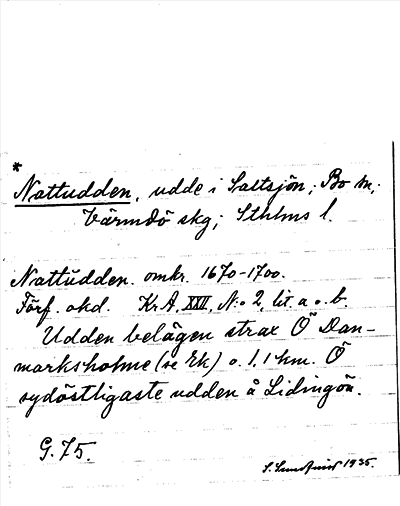 *
Nattudden, udde i Saltsjön; Bo sn;
Värmdö skg; Sthlms l.
Nattudden. omkr. 1670-1700.
Förf. okd. KrA, XXII, N:o 2, lit. a o. b.
Udden belägen strax Ö Dan-
marksholme (se Ek) o. 1,1 km. Ö
sydöstligaste udden å Lidingön.
G. 75.
S. Lundqvist 1935.